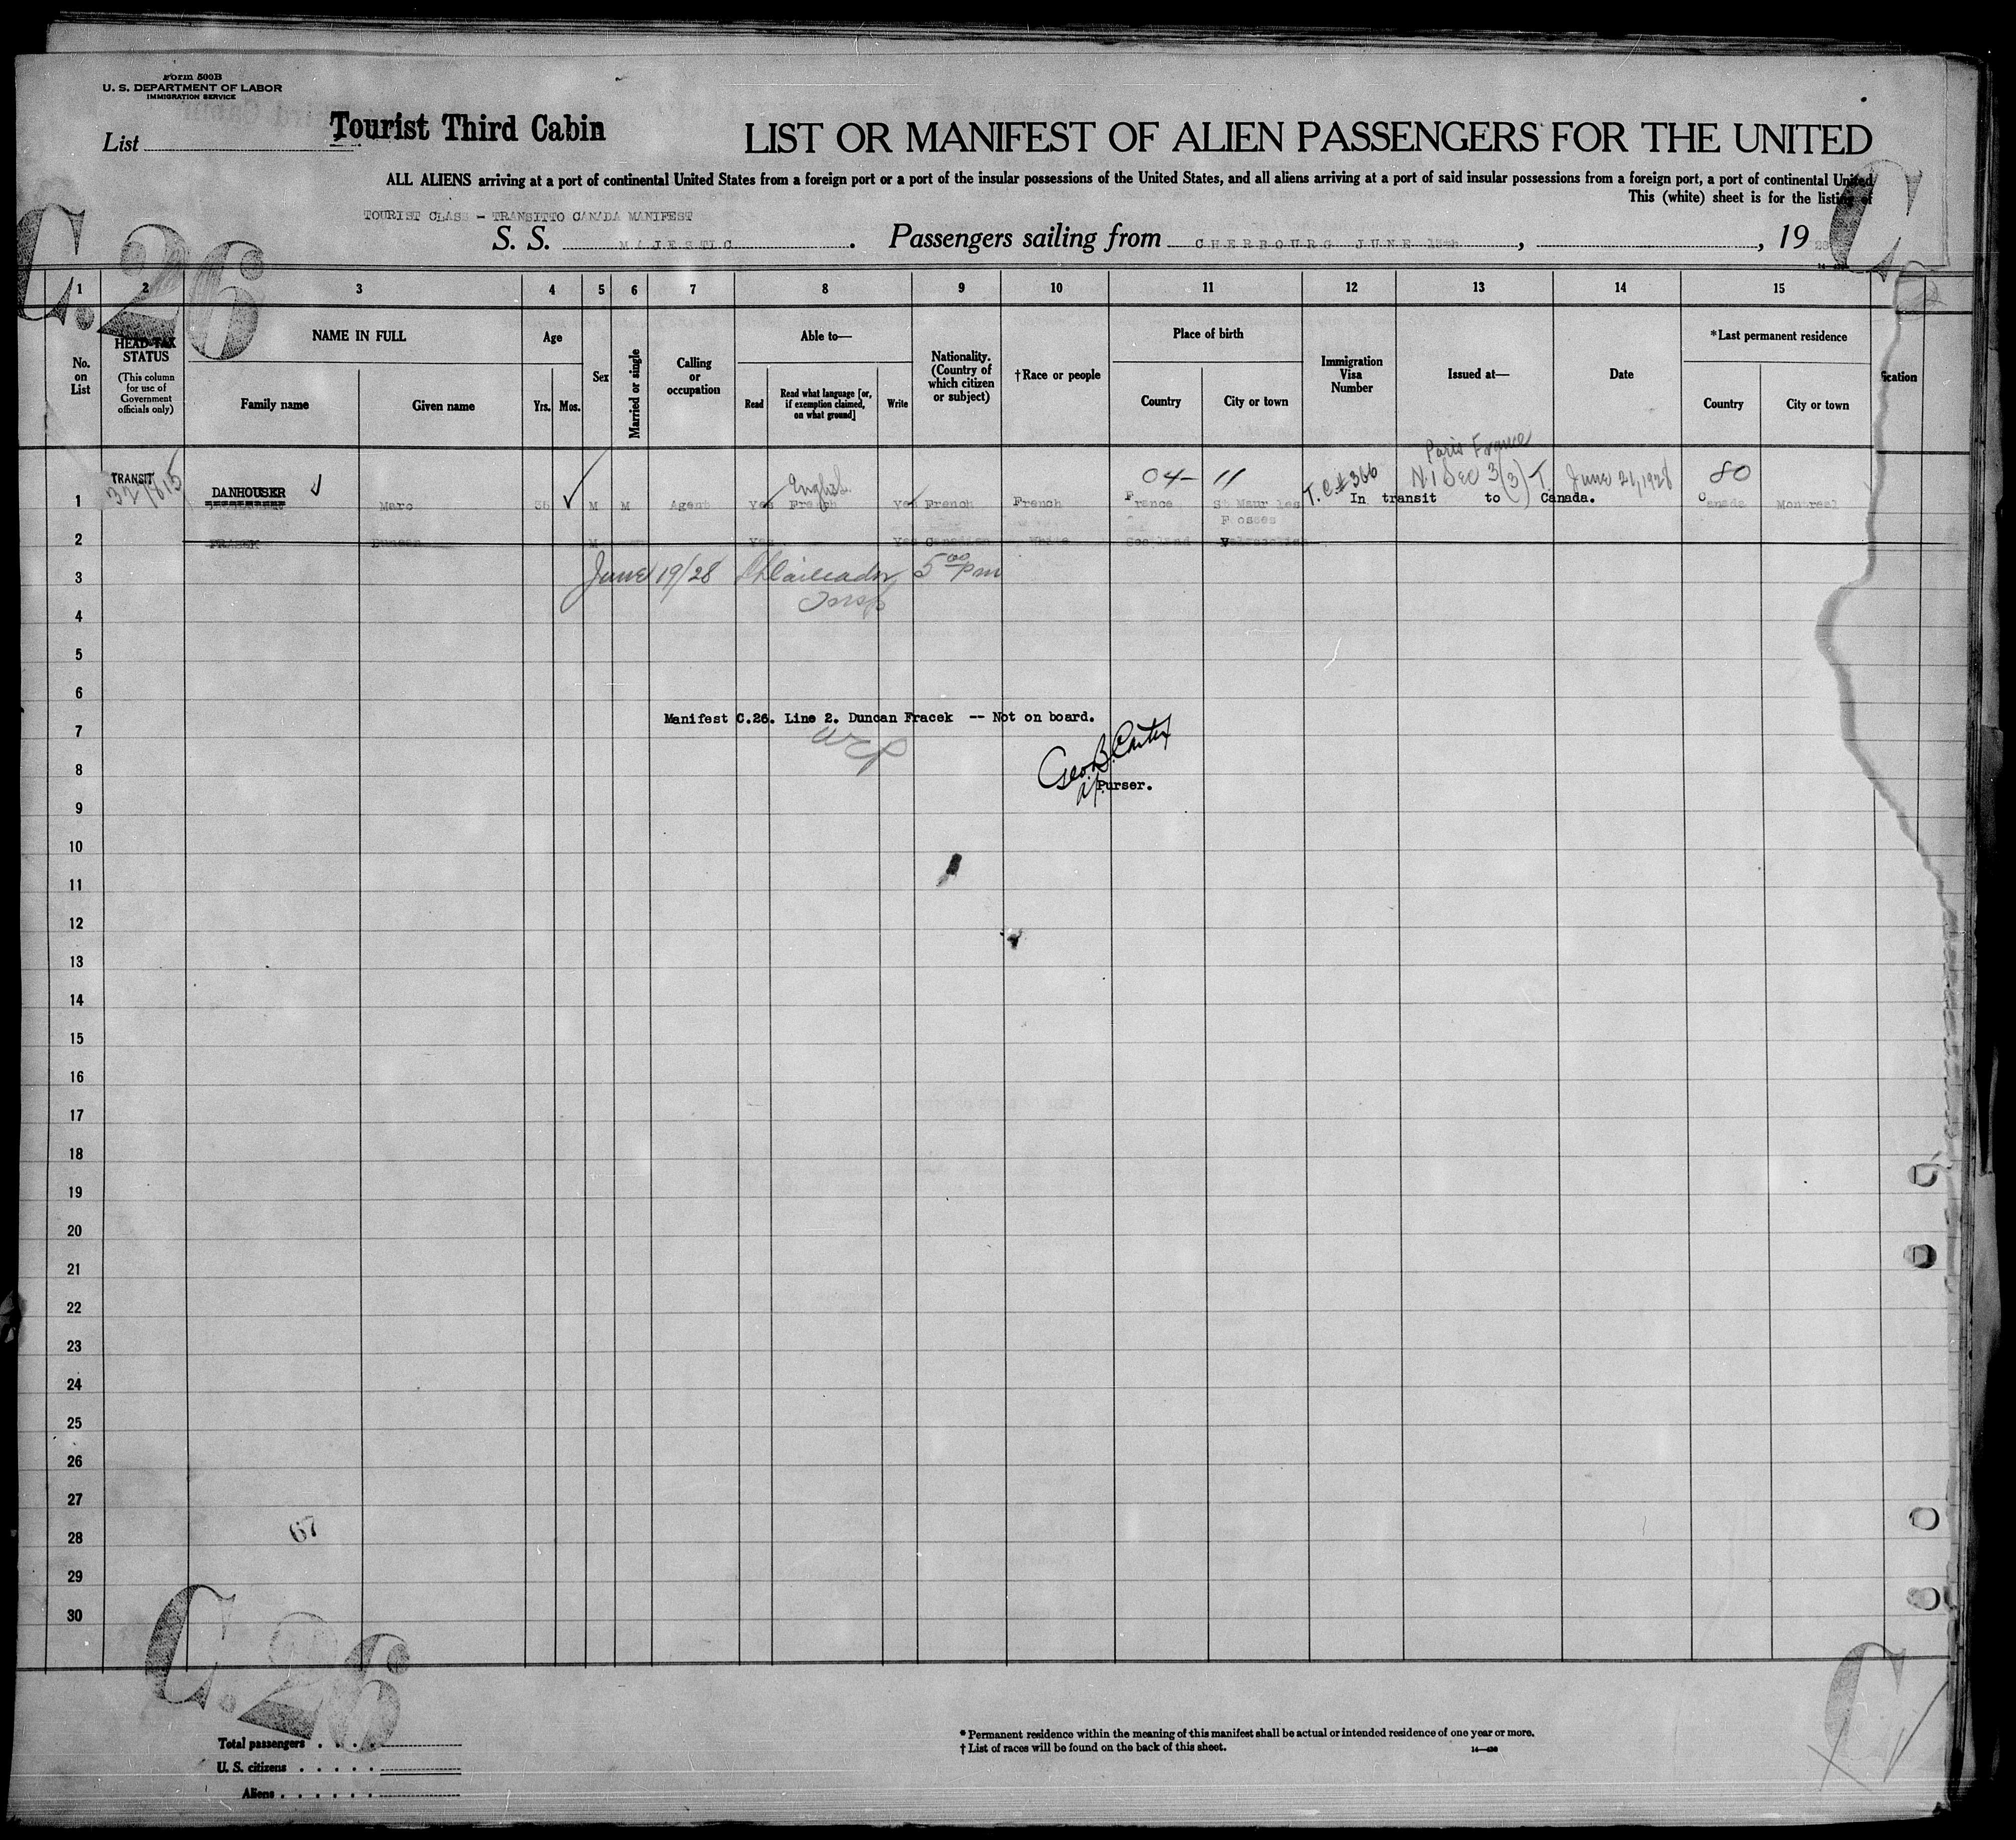 Form 500B
U. S. DEPARTMENT OF LABOR
IMMIGRATION SERVICE
List
Tourist Third Cabin
LIST OR MANIFEST OF ALIEN PASSENGERS FOR THE UNITED
ALL ALIENS arriving at a port of continental United States from a foreign port or a port of the insular possessions of the United States, and all aliens arriving at a port of said insular possessions from a foreign port, a port of continental United
This (white) sheet is for the listing of
TOURIST CLASS - TRANSITTO CANADA MANIFEST
S. S. MAJESTIC. Passengers sailing from CHERBOURG JUNE 13th, , 19 28
C.26
C
1 2 3 4 5 6 7 8 9 10 11 12 13 14 15
No. on List
HEAD-TAX STATUS
(This column for use of Government officials only)
NAME IN FULL
Family name
Given name
Age
Yrs.
Mos.
Sex
Married or single
Calling or occupation
Able to—
Read
Read what language [or, if exemption claimed, on what ground]
Write
Nationality. (Country of which citizen or subject)
†Race or people
Place of birth
Country
City or town
Immigration Visa Number
Issued at—
Date
*Last permanent residence
Country
City or town
ication
Paris France
04- 11
80
English
TRANSIT
1 DANHOUSER Marc M M Agent Yes French Yes French French France St Maur les Fosses
T.C.# 366
June 21, 1928
In transit to Canada.
Canada Montreal
2 FRASEK Duncan M Yes Yes Canadian White Scotland
3
June 19/28 5 00 pm
Insp
4
5
6
Manifest C.26. Line 2. Duncan Fracek -- Not on board.
7
Geo. B. Carter
8
Purser.
9
10
11
12
13
14
15
16
17
18
19
20
21
22
23
24
25
26
27
67
28
29
30
C.26
C
Total passengers
U. S. citizens
Aliens
* Permanent residence within the meaning of this manifest shall be actual or intended residence of one year or more.
† List of races will be found on the back of this sheet.